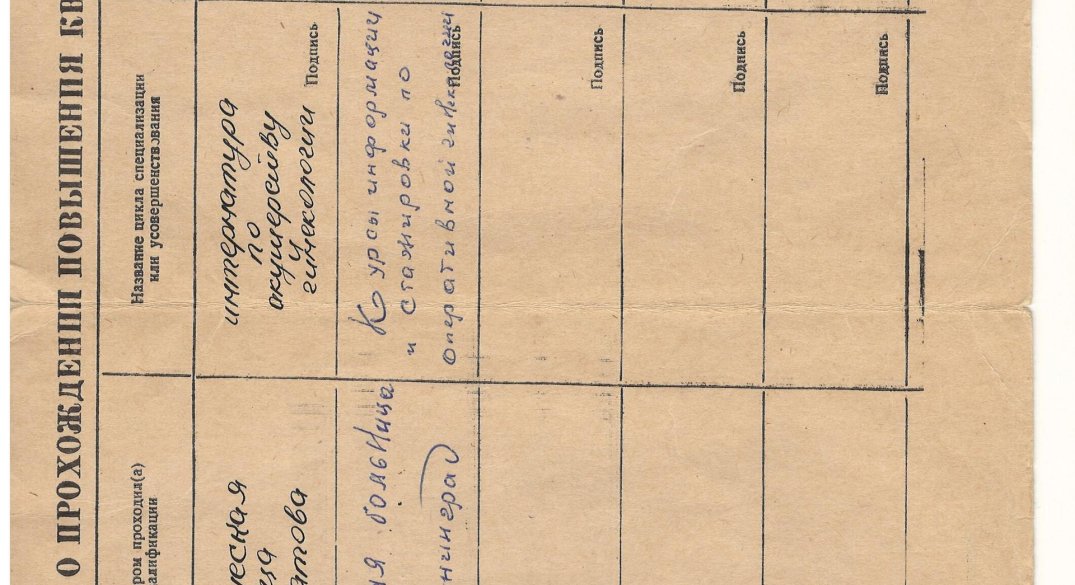 О ПРОХОЖДЕНИИ ПОВЫШЕНИЯ КВ
ром проходил(а)
алификации
Название цикла специализации
или усовершенствования
ческая
ца
атова
интернатура
по
акушерству
и
гинекологии
Подпись
ая больница
нинград
Курсы информации
и стажировки по
оперативной гинекологии
Подпись
Подпись
Подпись
Подпись